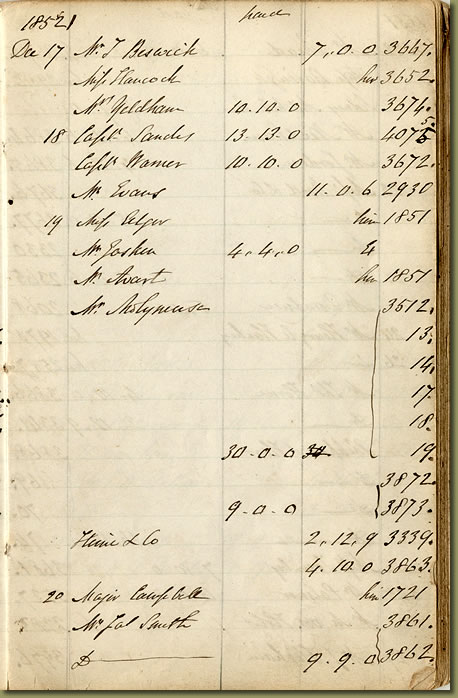 1852 paid
Dec 17 Mr T Beswick 7,,0.0 3667.
Miss Hancock 3652.
Mrs Yeldham 10.10.0 3674.
18 Captn Sandes 13.13.0 4075
Captn Warner 10.10.0 3672.
Mr Evans 11.0.6 2930
19 Miss 1851
Mr 4.4.0
Mr 1851
Mr Molyneux 3512.
13.
14.
17.
18.
30.0.0 19.
3872.
9.0.0 3873.
& Co 2,12,9 3339.
4.10.0 3863.
20 Major Campbell 1721
Mr Smith 3861.
9.9.0 3862.